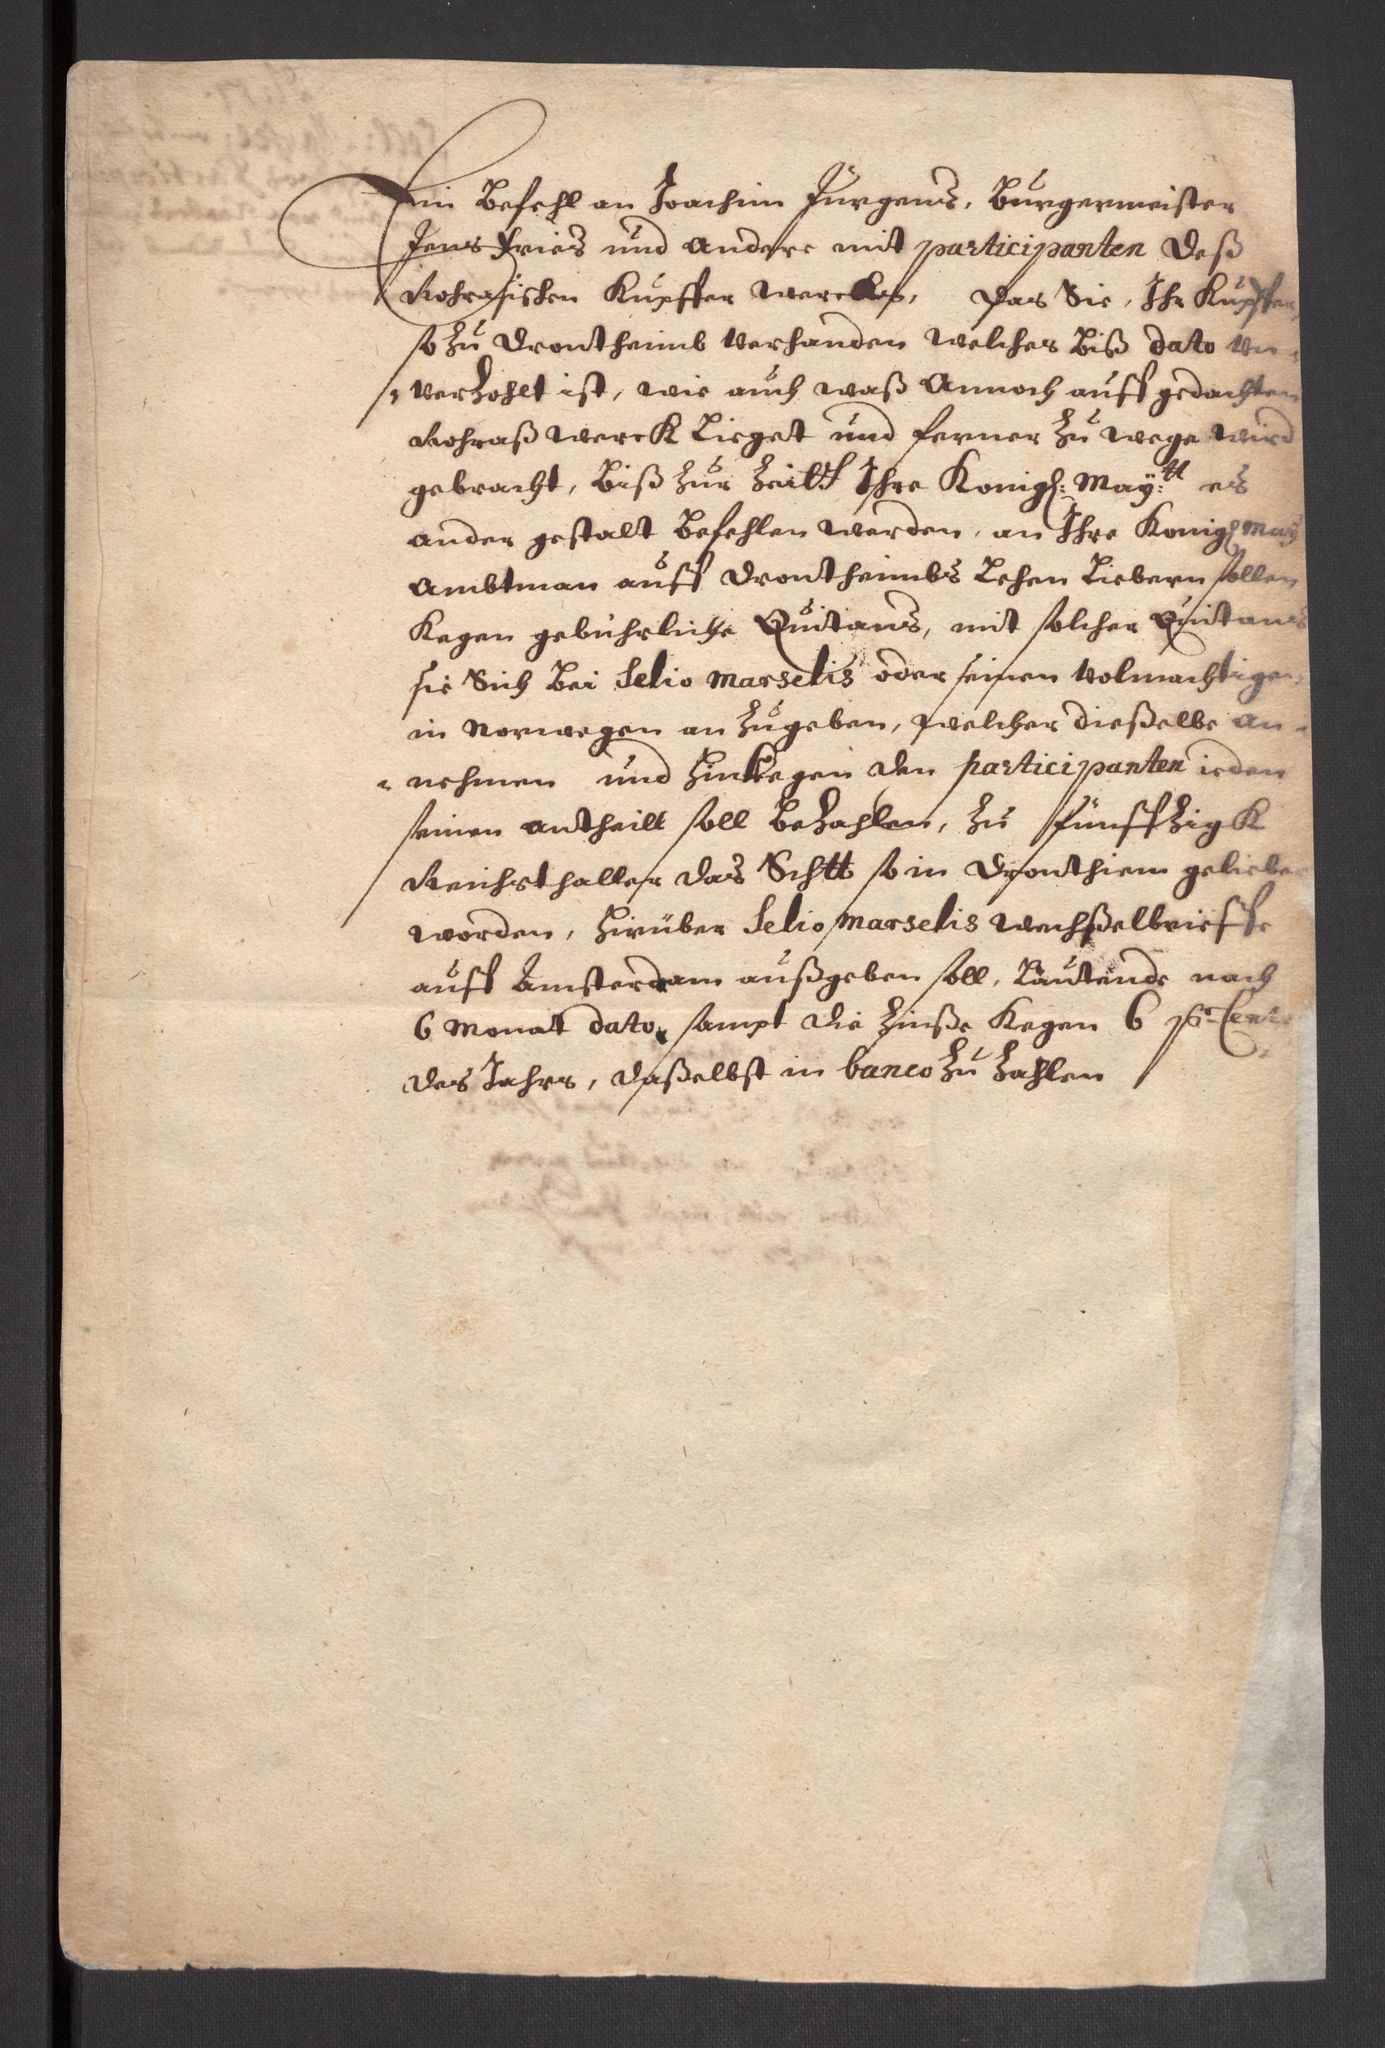 Ein Befehl an Joachim Jurgens, Burgermeister
Jens Fries und andere mit participanten deß
Rohrasischen Kupffer werckes, das Sie, Ihr Kupffer
so zu Drontheimb verhanden welches biß dato un-
-verhohlt ist, wie auch waß annoch auff gedachten
Rohraß werck lieget und ferner zu wege wird
gebracht, biß zur Zeitt Ihre Konigl: May:tt es
ander gestalt befehlen werden, an Ihre Konigl May
Ambtman auff Drontheimbs Lehen liebern sollen
Kegen gebuhrliche Quitans, mit solcher Quitans
sie Sich bei Selio Marselis oder seinen Volmachtigen
in Norwegen an zugeben, welcher dießelbe an-
-nehmen und hinkegen den participanten ieden
seinen antheill soll bezahlen, zu funffzigk
Reichsthaller das Schtt so in Dronthiem geliebert
worden, hirüber Selio Marselis wechßelbrieffe
auff Amsterdam außgeben soll, lautende nach
6 Monat dato, sampt die Zinße Kegen 6 pr Cento
des Jahrs, daßelbst in banco zu zahlen